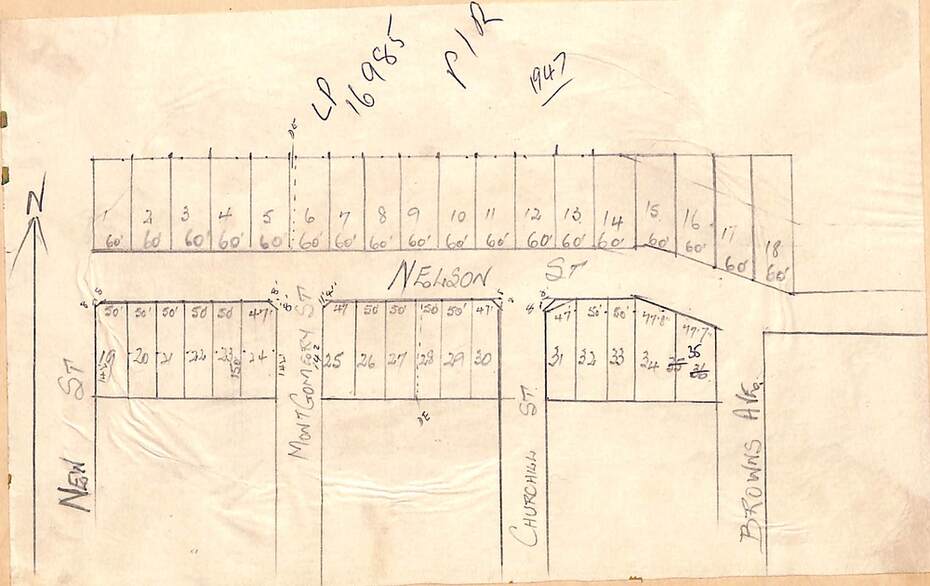 LP 16985
P/R
1947
N
DE
1 2 3 4 5 6 7 8 9 10 11 12 13 14 15 16 17 18
60' 60' 60' 60' 60' 60' 60' 60' 60' 60' 60' 60' 60' 60' 60' 60' 60' 60'
NELSON ST
50' 50' 50' 50' 47' 47 50' 50' 50' 50' 47' 47' 50' 50' 47'8" 47'7"
19 20 21 22 23 24 25 26 27 28 29 30 31 32 33 34 35 35 36
150' 142
DE
NEW ST
MONTGOMERY ST
CHURCHILL ST.
BROWNS AVE.